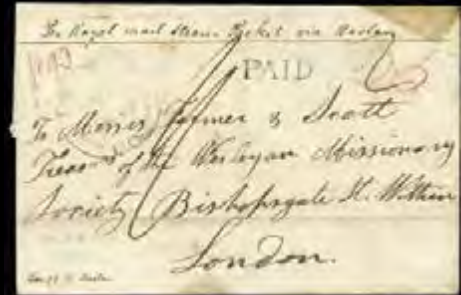 Per Royal mail Steam Packet via
Paid
PAID
To Messrs Farmer & Scott
Treasrs of the Wesleyan Missionary
Society Bishopsgate St. Within
London.